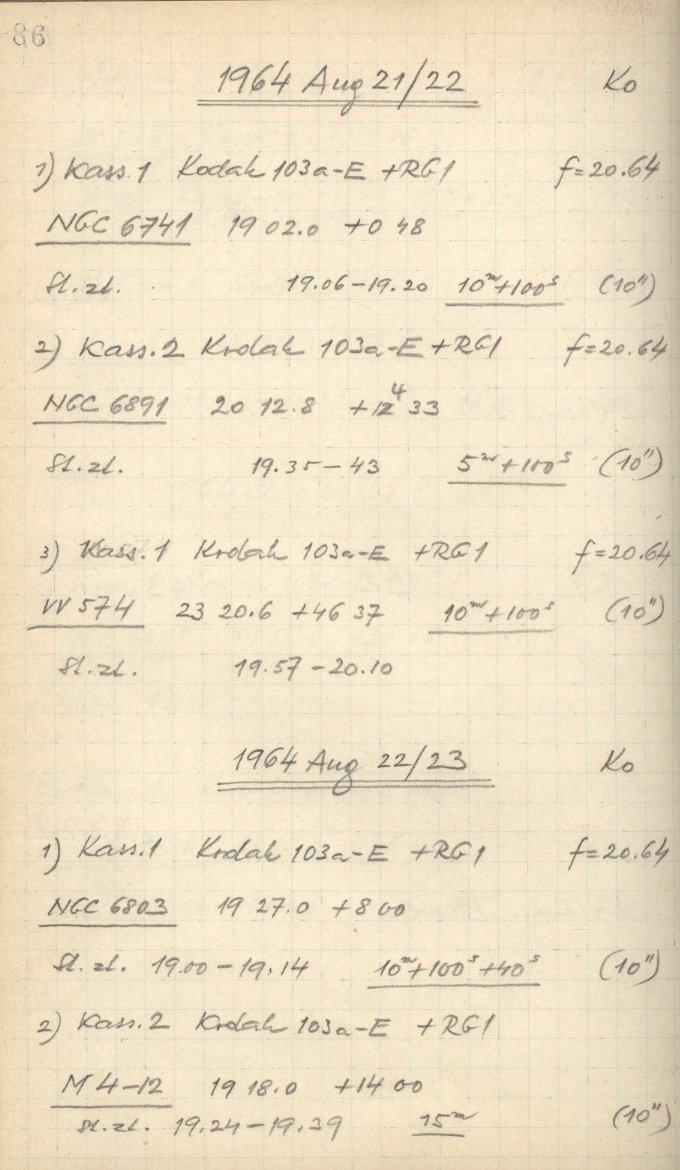 86
1964 Aug 21/22 Ko
1) Kass. 1 Kodak 103a-E +RG1 f=20.64
NGC 6741 19 02.0 +0 48
St.zt. 19.06-19.20 10ᵐ+100ˢ (10")
2) Kass. 2 Kodak 103a-E +RG1 f=20.64
NGC 6891 20 12.8 +12 4 33
St.zt. 19.35-43 5ᵐ+100ˢ (10")
3) Kass. 1 Kodak 103a-E +RG1 f=20.64
VV 574 23 20.6 +46 37 10ᵐ+100ˢ (10")
St.zt. 19.57-20.10
1964 Aug 22/23 Ko
1) Kass.1 Kodak 103a-E +RG1 f=20.64
NGC 6803 19 27.0 +8 00
St.zt. 19.00-19.14 10ᵐ+100ˢ+40ˢ (10")
2) Kass. 2 Kodak 103a-E +RG1
M 4-12 19 18.0 +14 00
St.zt. 19.24-19.39 15ᵐ (10")